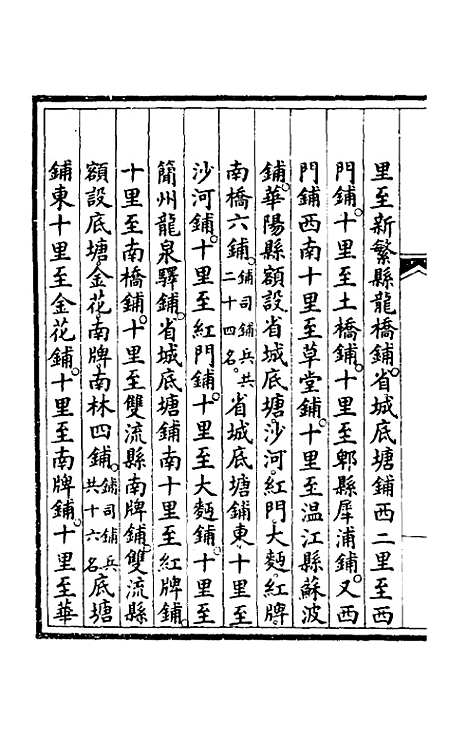 里至新繁縣龍橋鋪。省城底塘鋪西二里至西
門鋪。十里至土橋鋪。十里至郫縣犀浦鋪。又西
門鋪西南十里至草堂鋪。十里至温江縣蘇波
鋪。華陽縣額設省城底塘。沙河。紅門。大麵。紅牌。
南橋六鋪。鋪司鋪兵共二十四名。省城底塘鋪東十里至
沙河鋪。十里至紅門鋪。十里至大麵鋪。十里至
簡州龍泉驛鋪。省城底塘鋪南十里至紅牌鋪。
十里至南橋鋪。十里至雙流縣南牌鋪。雙流縣
額設底塘。金花。南牌。南林四鋪。鋪司鋪兵共十六名。底塘
鋪東十里至金花鋪。十里至南牌鋪。十里至華